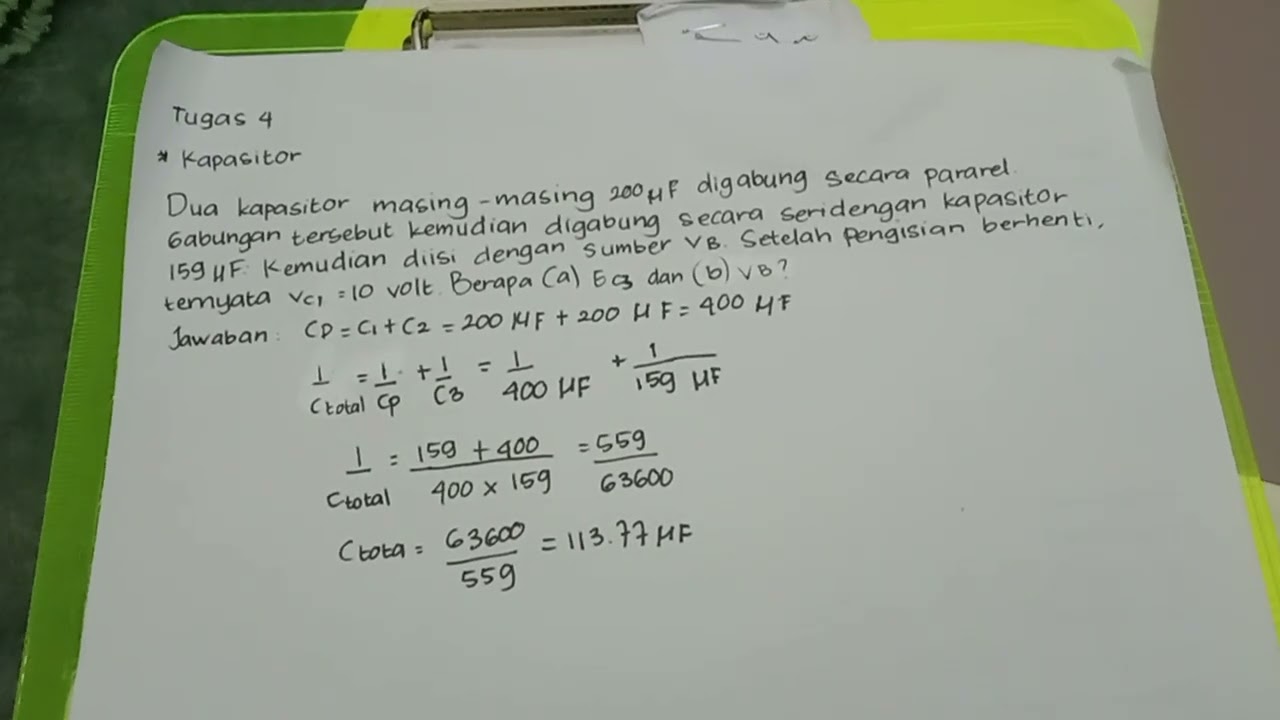 Tugas 4
* Kapasitor
Dua kapasitor masing-masing 200 μF digabung secara pararel.
Gabungan tersebut kemudian digabung secara seridengan kapasitor
159 μF. Kemudian diisi dengan sumber VB. Setelah pengisian berhenti,
ternyata VC1 = 10 volt. Berapa (a) EC3 dan (b) VB?
Jawaban: CP = C1 + C2 = 200 μF + 200 μF = 400 μF
1/Ctotal = 1/Cp + 1/C3 = 1/400 μF + 1/159 μF
1/Ctotal = 159 + 400/400 × 159 = 559/63600
Ctota = 63600/559 = 113.77 μF